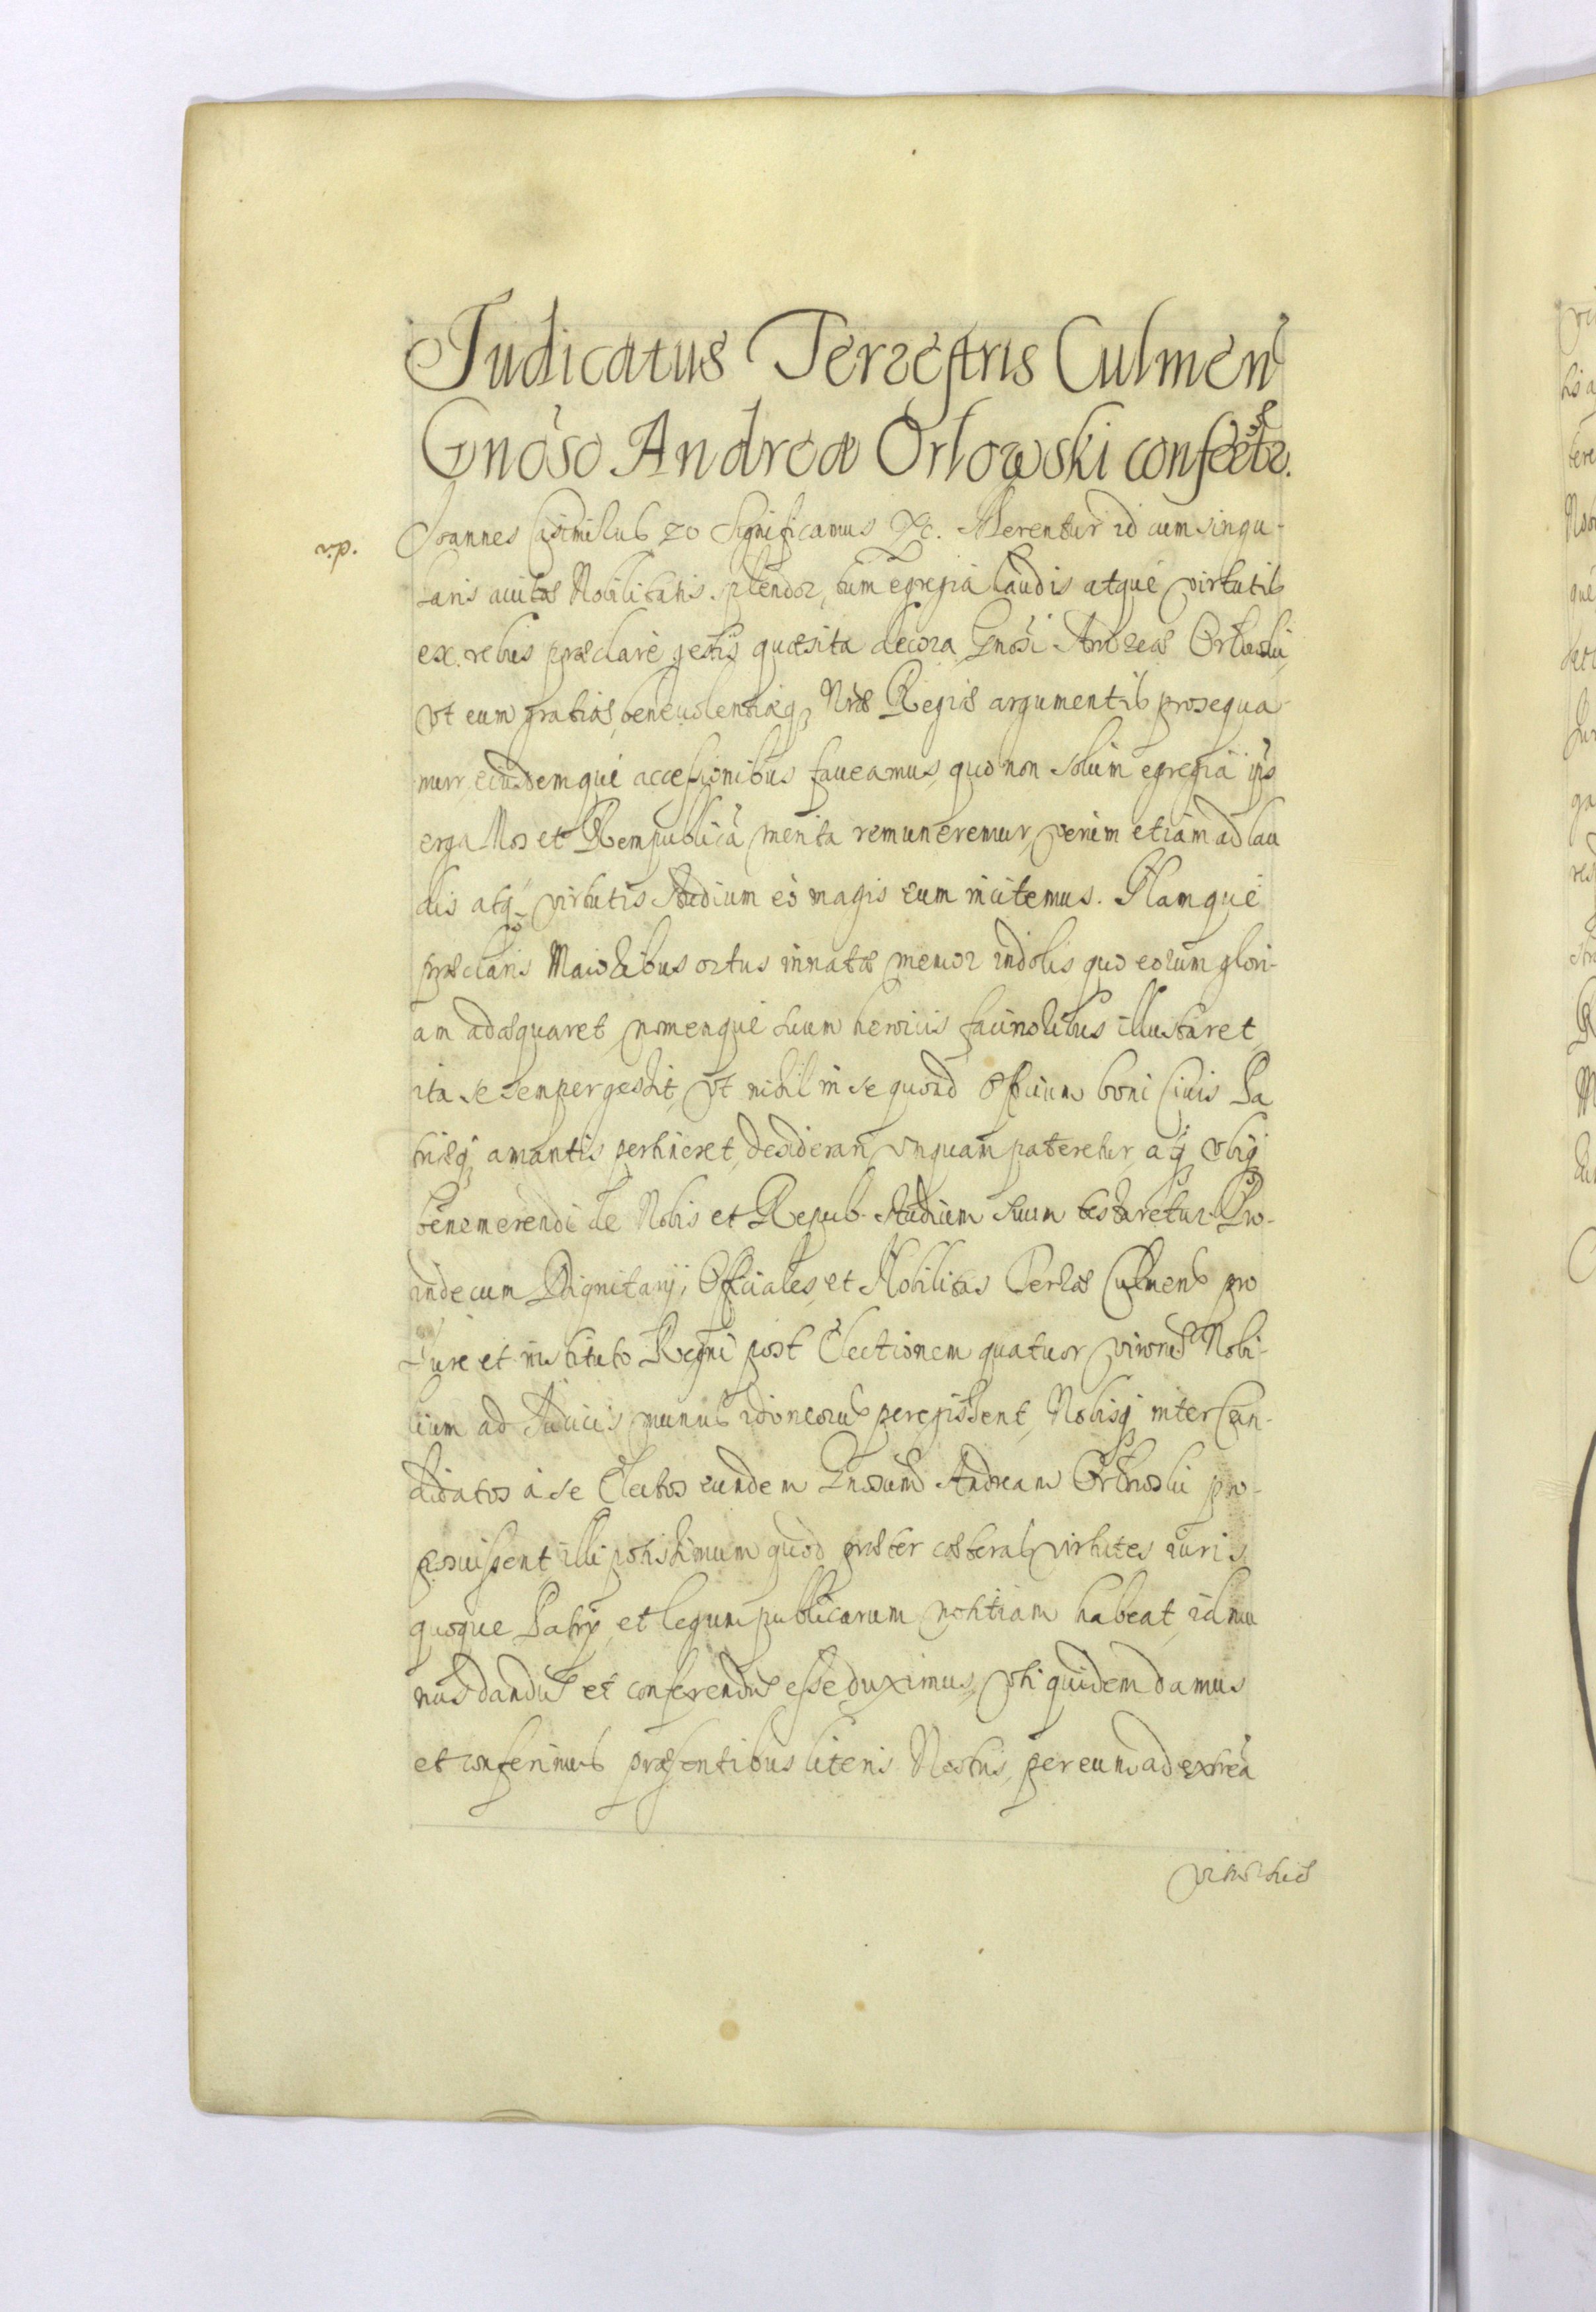 Judicatus Terrestris Culmen
Gnoso Andreæ Orlowski confertr.
Joannes Casimirus &c Significamus &c. Merentur id cum singu-
laris auitæ Nobilitatis splendor, tum egregia laudis atque virtutis
ex rebus præclare gestis quæsita decora Gnosi Andreæ Orlowski,
vt eum gratiæ, beneuolentiæq Nræ Regiæ argumentis prosequa-
mur, eiusdemque accessionibus faueamus, quo non solum egregia ips
erga Nos et Rempublicā merita remuneremur, verum etiam ad lau
dis atq virtutis studium eo magis eum incitemus. Namque
præclaris Maioribus ortus innatæ memor indolis quo eorum glori-
am adæquaret, nomenque suum heroicis facinoribus illustraret,
ita se semper gessit, vt nihil in se quoad Officium boni Ciuis Pa
triæq amantis pertineret, desiderari vnquam pateretur, atq vbiq
benemerendi de Nobis et Repub. studium suum testaretur. Pro-
inde cum Dignitarij, Officiales, et Nobilitas Terræ Culmens pro
Jure et instituto Regni post Electionem quatuor virorū Nobi-
lium ad Judicis munus idoneorū peregissent, Nobisq inter Can-
didatos a se Electos eundem Gnosum Andream Orlowski pro-
posuissent, illi potissimum quod præter cæteras virtutes iuris
quoque Patrij et legum publicarum notitiam habeat, id mu
nus dandū et conferendū esse duximus, vti quidem damus
et conferimus præsentibus literis Nostris, per eum ad extrea
vitæ suæ